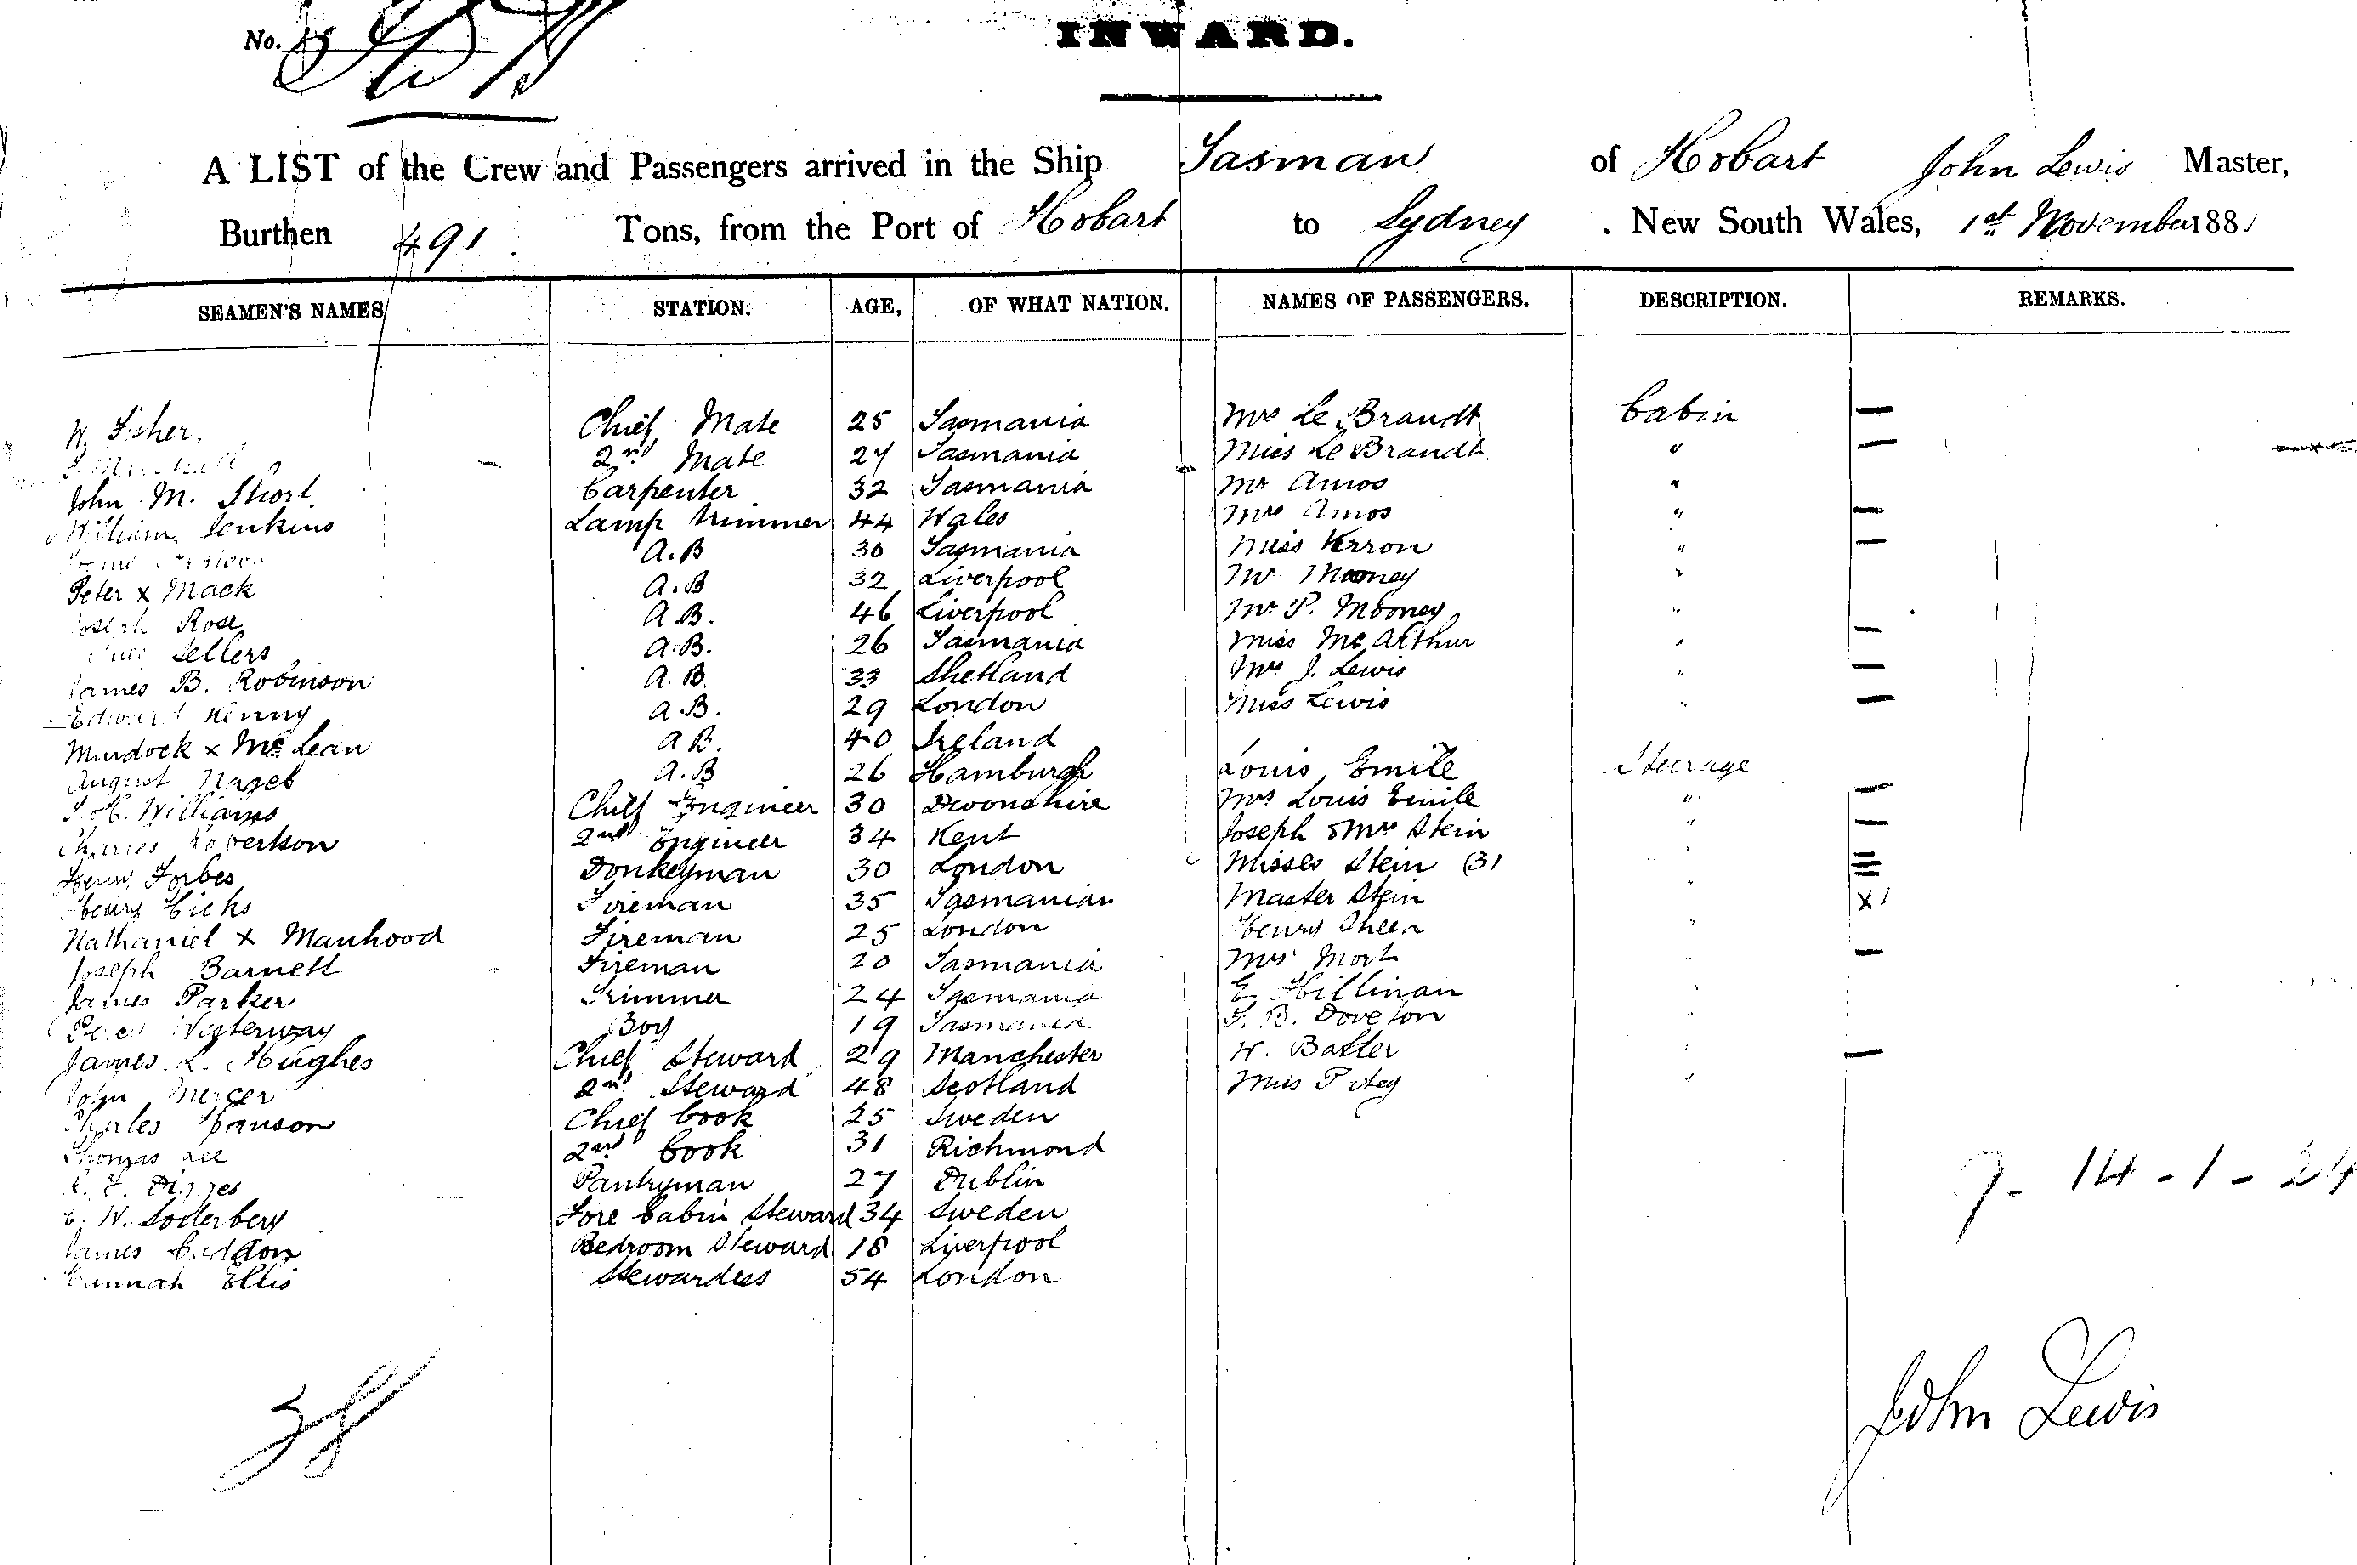 No.
INWARD.
A LIST of the Crew and Passengers arrived in the Ship Tasman of Hobart John Lewis Master,
Burthen 491 Tons, from the Port of Hobart to Sydney . New South Wales, 1st November 1881
SEAMEN'S NAMES STATION. AGE, OF WHAT NATION. NAMES OF PASSENGERS. DESCRIPTION. REMARKS.
W. Fisher. Chief Mate 25 Tasmania Mrs Le Brandt Cabin —
2nd Mate 27 Tasmania Miss Le Brandt " —
John M. Short Carpenter 32 Tasmania Mr Amos "
William Jenkins Lamp trimmer 44 Wales Mrs Amos " —
A.B 30 Tasmania Miss Kerron " —
Peter x Mack A.B 32 Liverpool Mr Mooney "
Joseph Rose A.B. 46 Liverpool Mr P. Mooney "
Sellers A.B. 26 Tasmania Miss McArthur " —
James B. Robinson A.B. 33 Shetland Mrs J. Lewis " —
Edward Kenny A.B. 29 London Miss Lewis " —
Murdock x McLean A.B. 40 Ireland
August Nagel A.B 26 Hamburgh Louis Emile Steerage
J. H. Williams Chief Engineer 30 Devonshire Mrs Louis Emile " —
Charles Robertson 2nd Engineer 34 Kent Joseph & Mrs Stein " —
Forbes Donkeyman 30 London Misses Stein (3) "
Henry Hicks Fireman 35 Tasmanian Master Stein " x1
Nathaniel x Manhood Fireman 25 London Henry "
Joseph Barnett Fireman 20 Tasmania Mrs Mort " —
James Parker Trimmer 24 Tasmania E. Hillman "
Westerway Boy 19 Tasmania Doveton "
James L. Hughes Chief Steward 29 Manchester " —
John Mercer 2nd Steward 48 Scotland Miss "
Charles Hanson Chief Cook 25 Sweden
Thomas Lee 2nd Cook 31 Richmond
Pantryman 27 Dublin
W. Soderberg Fore Cabin Steward 34 Sweden
James Cuddon Bedroom Steward 18 Liverpool
Hannah Ellis Stewardess 54 London
7 - 14 - 1 - 24
John Lewis